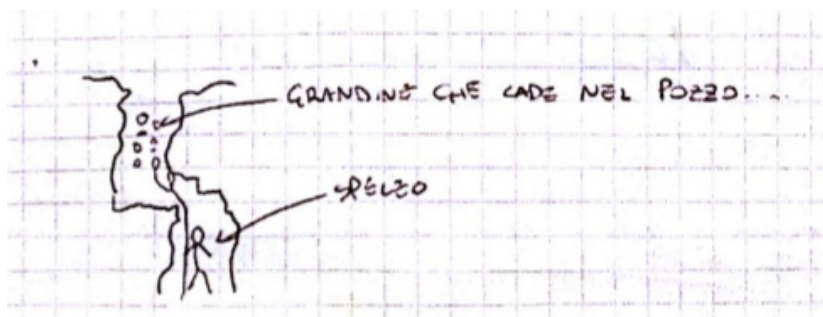 GRANDINE CHE CADE NEL POZZO...
SPELEO